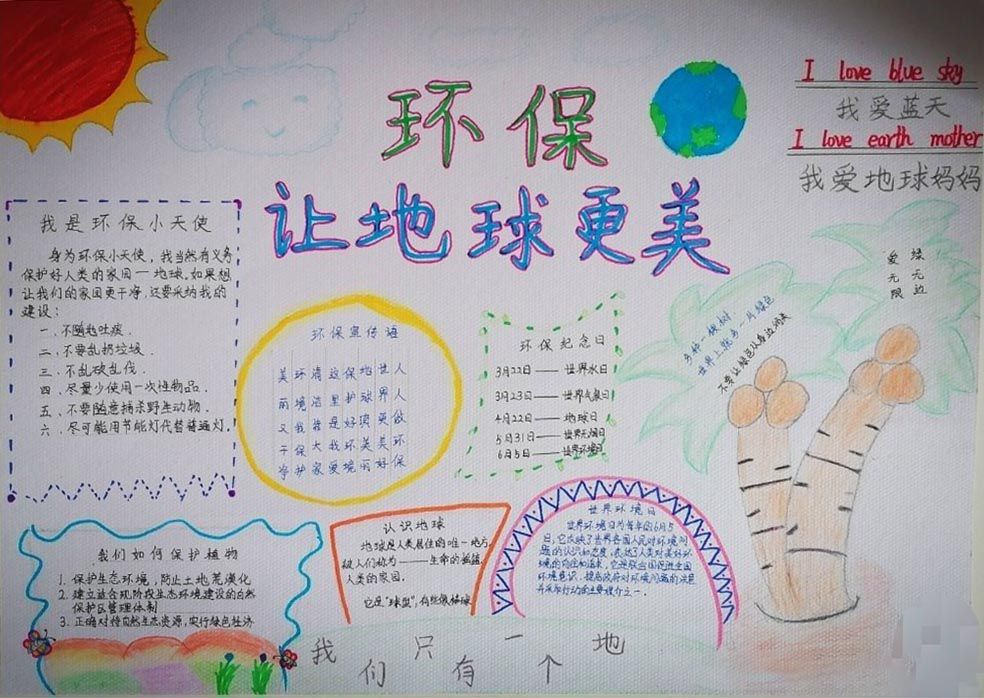 环保
让地球更美
I love blue sky
我爱蓝天
I love earth mother
我爱地球妈妈
我是环保小天使
身为环保小天使,我当然有义务
保护好人类的家园一地球,如果想
让我们的家园更干净,还要采纳我的
建议:
一、不随地吐痰.
二、不要乱扔垃圾.
三、不乱砍乱伐.
四、尽量少使用一次性物品.
五、不要随意捕杀野生动物.
六、尽可能用节能灯代替普通灯.
环保宣传语
美环清这保地世人
丽境洁里护球界人
又我皆是好更做
干保大我环美美环
净护家爱境丽好保
环保纪念日
3月22日——世界水日
3月23日——世界气象日
4月22日——地球日
5月31日——世界无烟日
6月5日——世界环境日
多种一棵树
世界上就多一片绿色
不要让绿色从身边消失
爱无限
绿无边
我们如何保护植物
1. 保护生态环境,防止土地荒漠化
2. 建立适合现阶段生态环境建设的自然
保护区管理体制
3. 正确对待自然生态资源,实行绿色经济
认识地球
地球是人类居住的唯一地方,
被人们称为——生命的摇篮,
人类的家园.
它是"球型",有些像椭球
世界环境日
世界环境日为每年的6月5
日,它反映了世界各国人民对环境问
题的认识和态度,表达了人类对美好环
境的向往和追求,它是联合国促进全国
环境意识、提高政府对环境问题的注意
并采取行动的主要媒介之一.
我们只有一个地